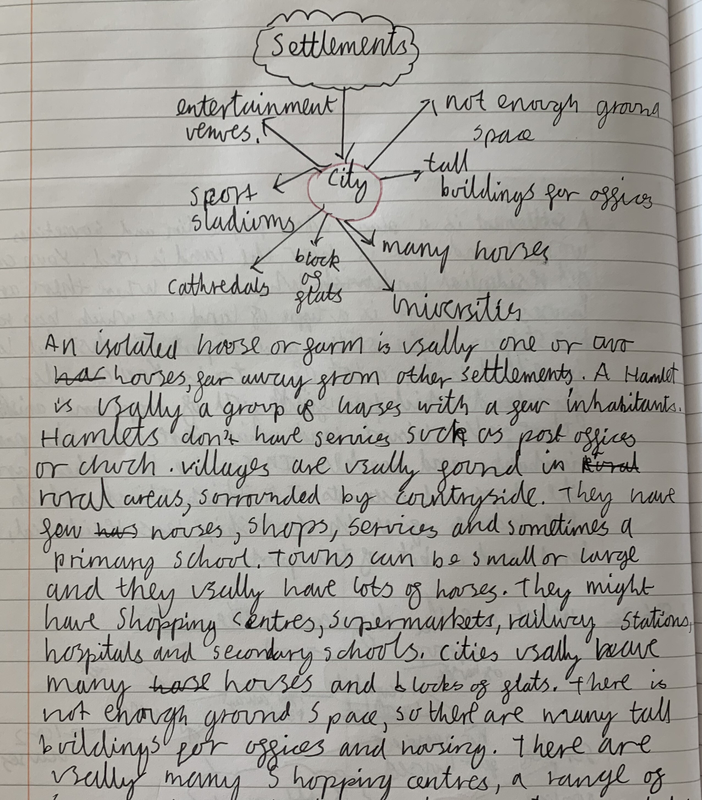 Settlements
entertainment
venues.
not enough ground
space
City
tall
buildings for offices
sport
stadiums
many houses
block
of
flats
cathredals
Universities
An isolated house or farm is usally one or
houses, far away from other settlements. A Hamlet
is usally a group of houses with a few inhabitants.
Hamlets don't have services such as post offices
or chuch. villages are usally found in rural
rural areas, sorrounded by countryside. They have
few houses, shops, services and sometimes a
primary school. Towns can be small or large
and they usally have lots of houses. They might
have shopping centres, supermarkets, railway stations,
hospitals and secondary schools. cities usally
many houses and blocks of flats. There is
not enough ground space, so there are many tall
buildings for offices and housing. There are
usally many shopping centres, a range of